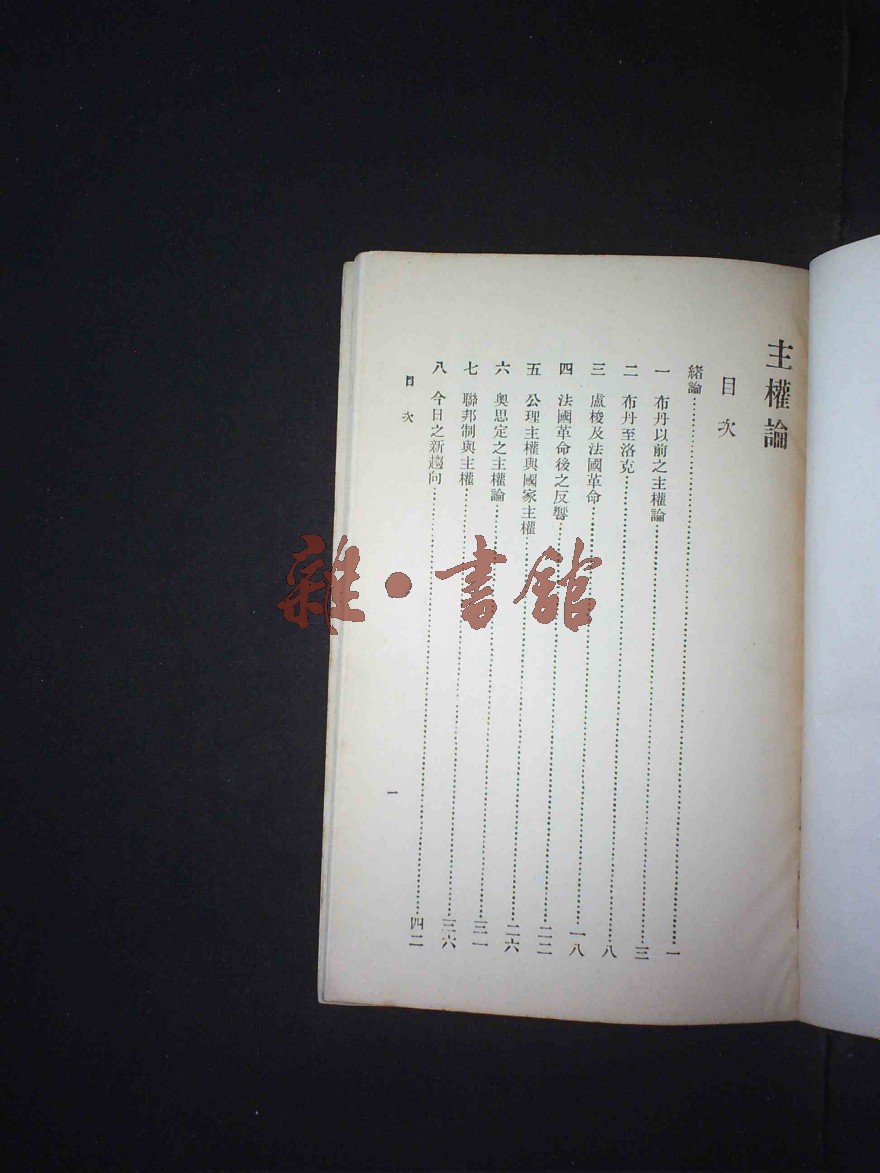 主權論
目次
緒論……一
一 布丹以前之主權論……三
二 布丹至洛克……八
三 盧梭及法國革命……一八
四 法國革命後之反響……二二
五 公理主權與國家主權……二六
六 奧思定之主權論……三一
七 聯邦制與主權……三六
八 今日之新趨向……四二
目次
一
雜·書館